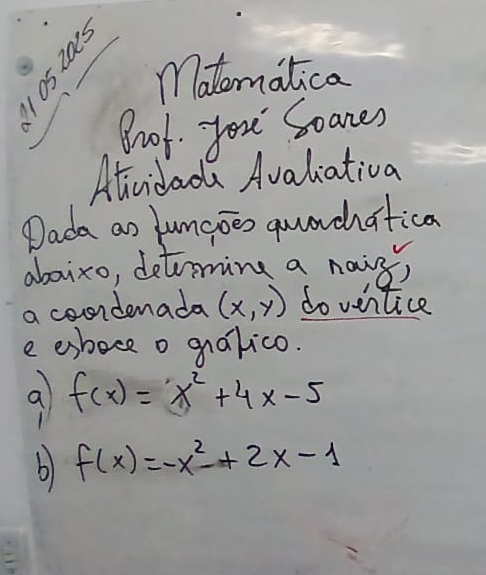 21 05 2025
Matemática
Prof. José Soares
Atividade Avaliativa
Dada as funções quadrática
abaixo, determine a raiz,
a coordenada (x,y) do vértice
e esboce o gráfico.
a) f(x) = x² + 4x - 5
b) f(x) = -x² + 2x - 1